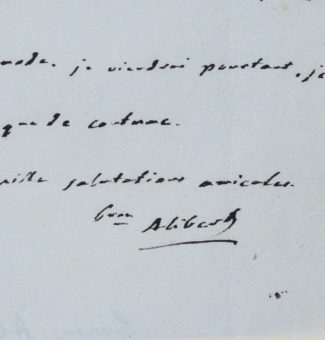 malade. je viendrai pourtant, je
que de coutume.
mille salutations amicales.
Bon Alibert